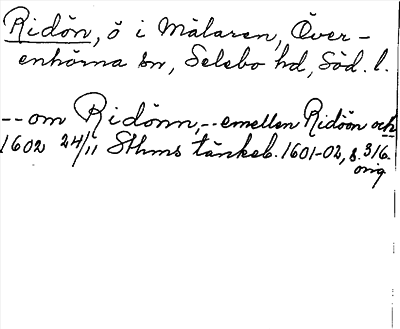 Ridön, ö i Mälaren, Över-
enhörna sn, Selebo hd, Söd. l.
-- om Ridönn, -- emellen Ridöön och
1602 24/11 Sthms tänkeb. 1601-02, s. 316.
orig